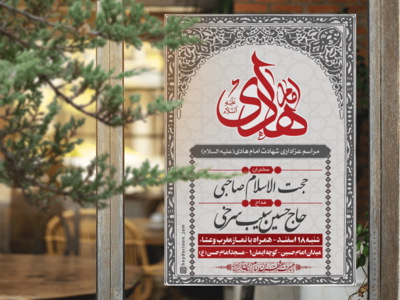 هادی
علیه السلام
مراسم عزاداری شهادت امام هادی (علیه السلام)
سخنران
حجت الاسلام صاحبی
مداح
حاج حسین سیب سرخی
شنبه ۱۸ اسفند - همراه با نماز مغرب و عشاء
میدان امام حسین - کوچه ایمان ۱ - مسجد امام حسن (ع)